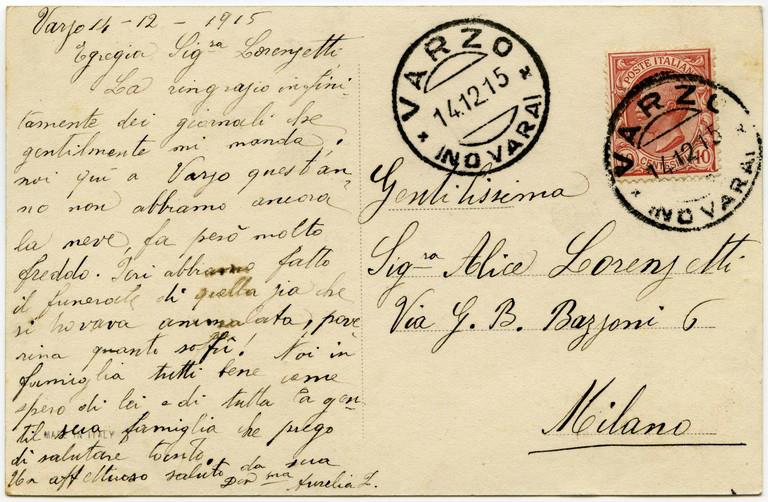 Varzo 14-12-1915
Egregia Sig.ra Lorenzetti
La ringrazio infini-
tamente dei giornali che
gentilmente mi manda;
noi quì a Varzo quest'an-
no non abbiamo ancora
la neve, fa però molto
freddo. Ieri abbiamo fatto
il funerale di quella zia che
si trovava ammalata, pove
rina quanto soffrì! Noi in
famiglia tutti bene come
spero di lei e di tutta la gen-
til sua famiglia che prego
di salutare tanto.
Un affettuoso saluto da sua
Dev.ma Aurelia Z.
MADE IN ITALY
VARZO
14.12.15
(NOVARA)
POSTE ITALIANE
CENTESIMI 10
VARZO
14.12.15
(NOVARA)
Gentilissima
Sig.ra Alice Lorenzetti
Via G. B. Bazzoni 6
Milano